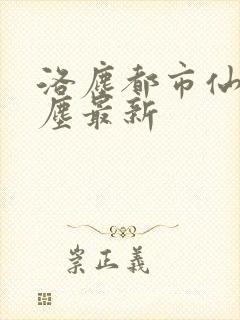 洛塵都市仙
塵最新
崇正義